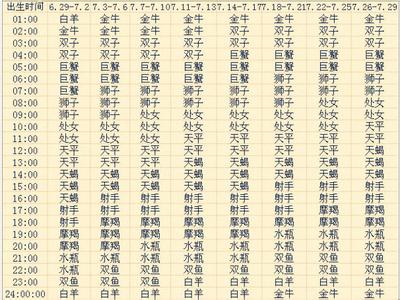 出生时间 6.29-7.2 7.3-7.6 7.7-7.10 7.11-7.13 7.14-7.17 7.18-7.21 7.22-7.25 7.26-7.29
01:00 白羊 金牛 金牛 金牛 金牛 金牛 金牛 金牛
02:00 金牛 金牛 金牛 金牛 双子 双子 双子 双子
03:00 双子 双子 双子 双子 双子 双子 双子 双子
04:00 双子 双子 双子 双子 巨蟹 巨蟹 巨蟹 巨蟹
05:00 巨蟹 巨蟹 巨蟹 巨蟹 巨蟹 巨蟹 巨蟹 巨蟹
06:00 巨蟹 巨蟹 巨蟹 巨蟹 巨蟹 狮子 狮子 狮子
07:00 巨蟹 狮子 狮子 狮子 狮子 狮子 狮子 狮子
08:00 狮子 狮子 狮子 狮子 狮子 狮子 处女 处女
09:00 狮子 狮子 处女 处女 处女 处女 处女 处女
10:00 处女 处女 处女 处女 处女 处女 处女 天平
11:00 处女 处女 处女 天平 天平 天平 天平 天平
12:00 天平 天平 天平 天平 天平 天平 天平 天蝎
13:00 天平 天平 天蝎 天蝎 天蝎 天蝎 天蝎 天蝎
14:00 天蝎 天蝎 天蝎 天蝎 天蝎 天蝎 天蝎 天蝎
15:00 天蝎 天蝎 天蝎 射手 射手 射手 射手 射手
16:00 天蝎 射手 射手 射手 射手 射手 射手 射手
17:00 射手 射手 射手 射手 射手 射手 摩羯 摩羯
18:00 射手 摩羯 摩羯 摩羯 摩羯 摩羯 摩羯 摩羯
19:00 摩羯 摩羯 摩羯 摩羯 摩羯 水瓶 水瓶 水瓶
20:00 摩羯 摩羯 水瓶 水瓶 水瓶 水瓶 水瓶 水瓶
21:00 水瓶 水瓶 水瓶 水瓶 水瓶 双鱼 双鱼 双鱼
22:00 水瓶 双鱼 双鱼 双鱼 双鱼 双鱼 双鱼 双鱼
23:00 双鱼 双鱼 双鱼 双鱼 白羊 白羊 白羊 白羊
24:00:00 白羊 白羊 白羊 白羊 白羊 金牛 金牛 金牛